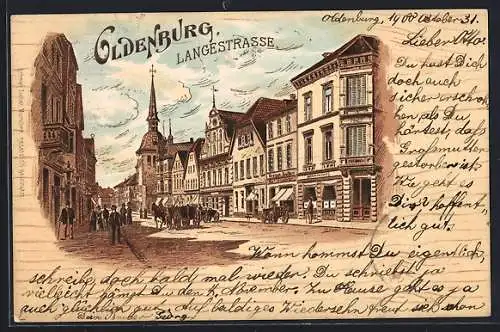 OLDENBURG.
LANGESTRASSE
Oldenburg, 1900 October 31.
Lieber Otto.
Du hast Dich
doch auch
sicher erschro-
ken als Du
hörtest, daß
Großmutter
gestorben ist
Wie geht es
Dir? hoffent-
lich gut.
Wann kommst Du eigentlich,
schreibe doch bald mal wieder. Du schriebst ja
vielleicht kämst Du den November. Zu Hause geht es ja
auch gut. Auf baldiges Wiedersehn freut sich schon
Georg.